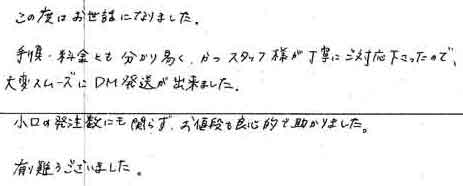 この度はお世話になりました。
手順・料金とも分かり易く、かつスタッフ様が丁寧にご対応下さったので、
大変スムーズにDM発送が出来ました。
小口の発注数にも関らず、お値段も良心的で助かりました。
有り難うございました。